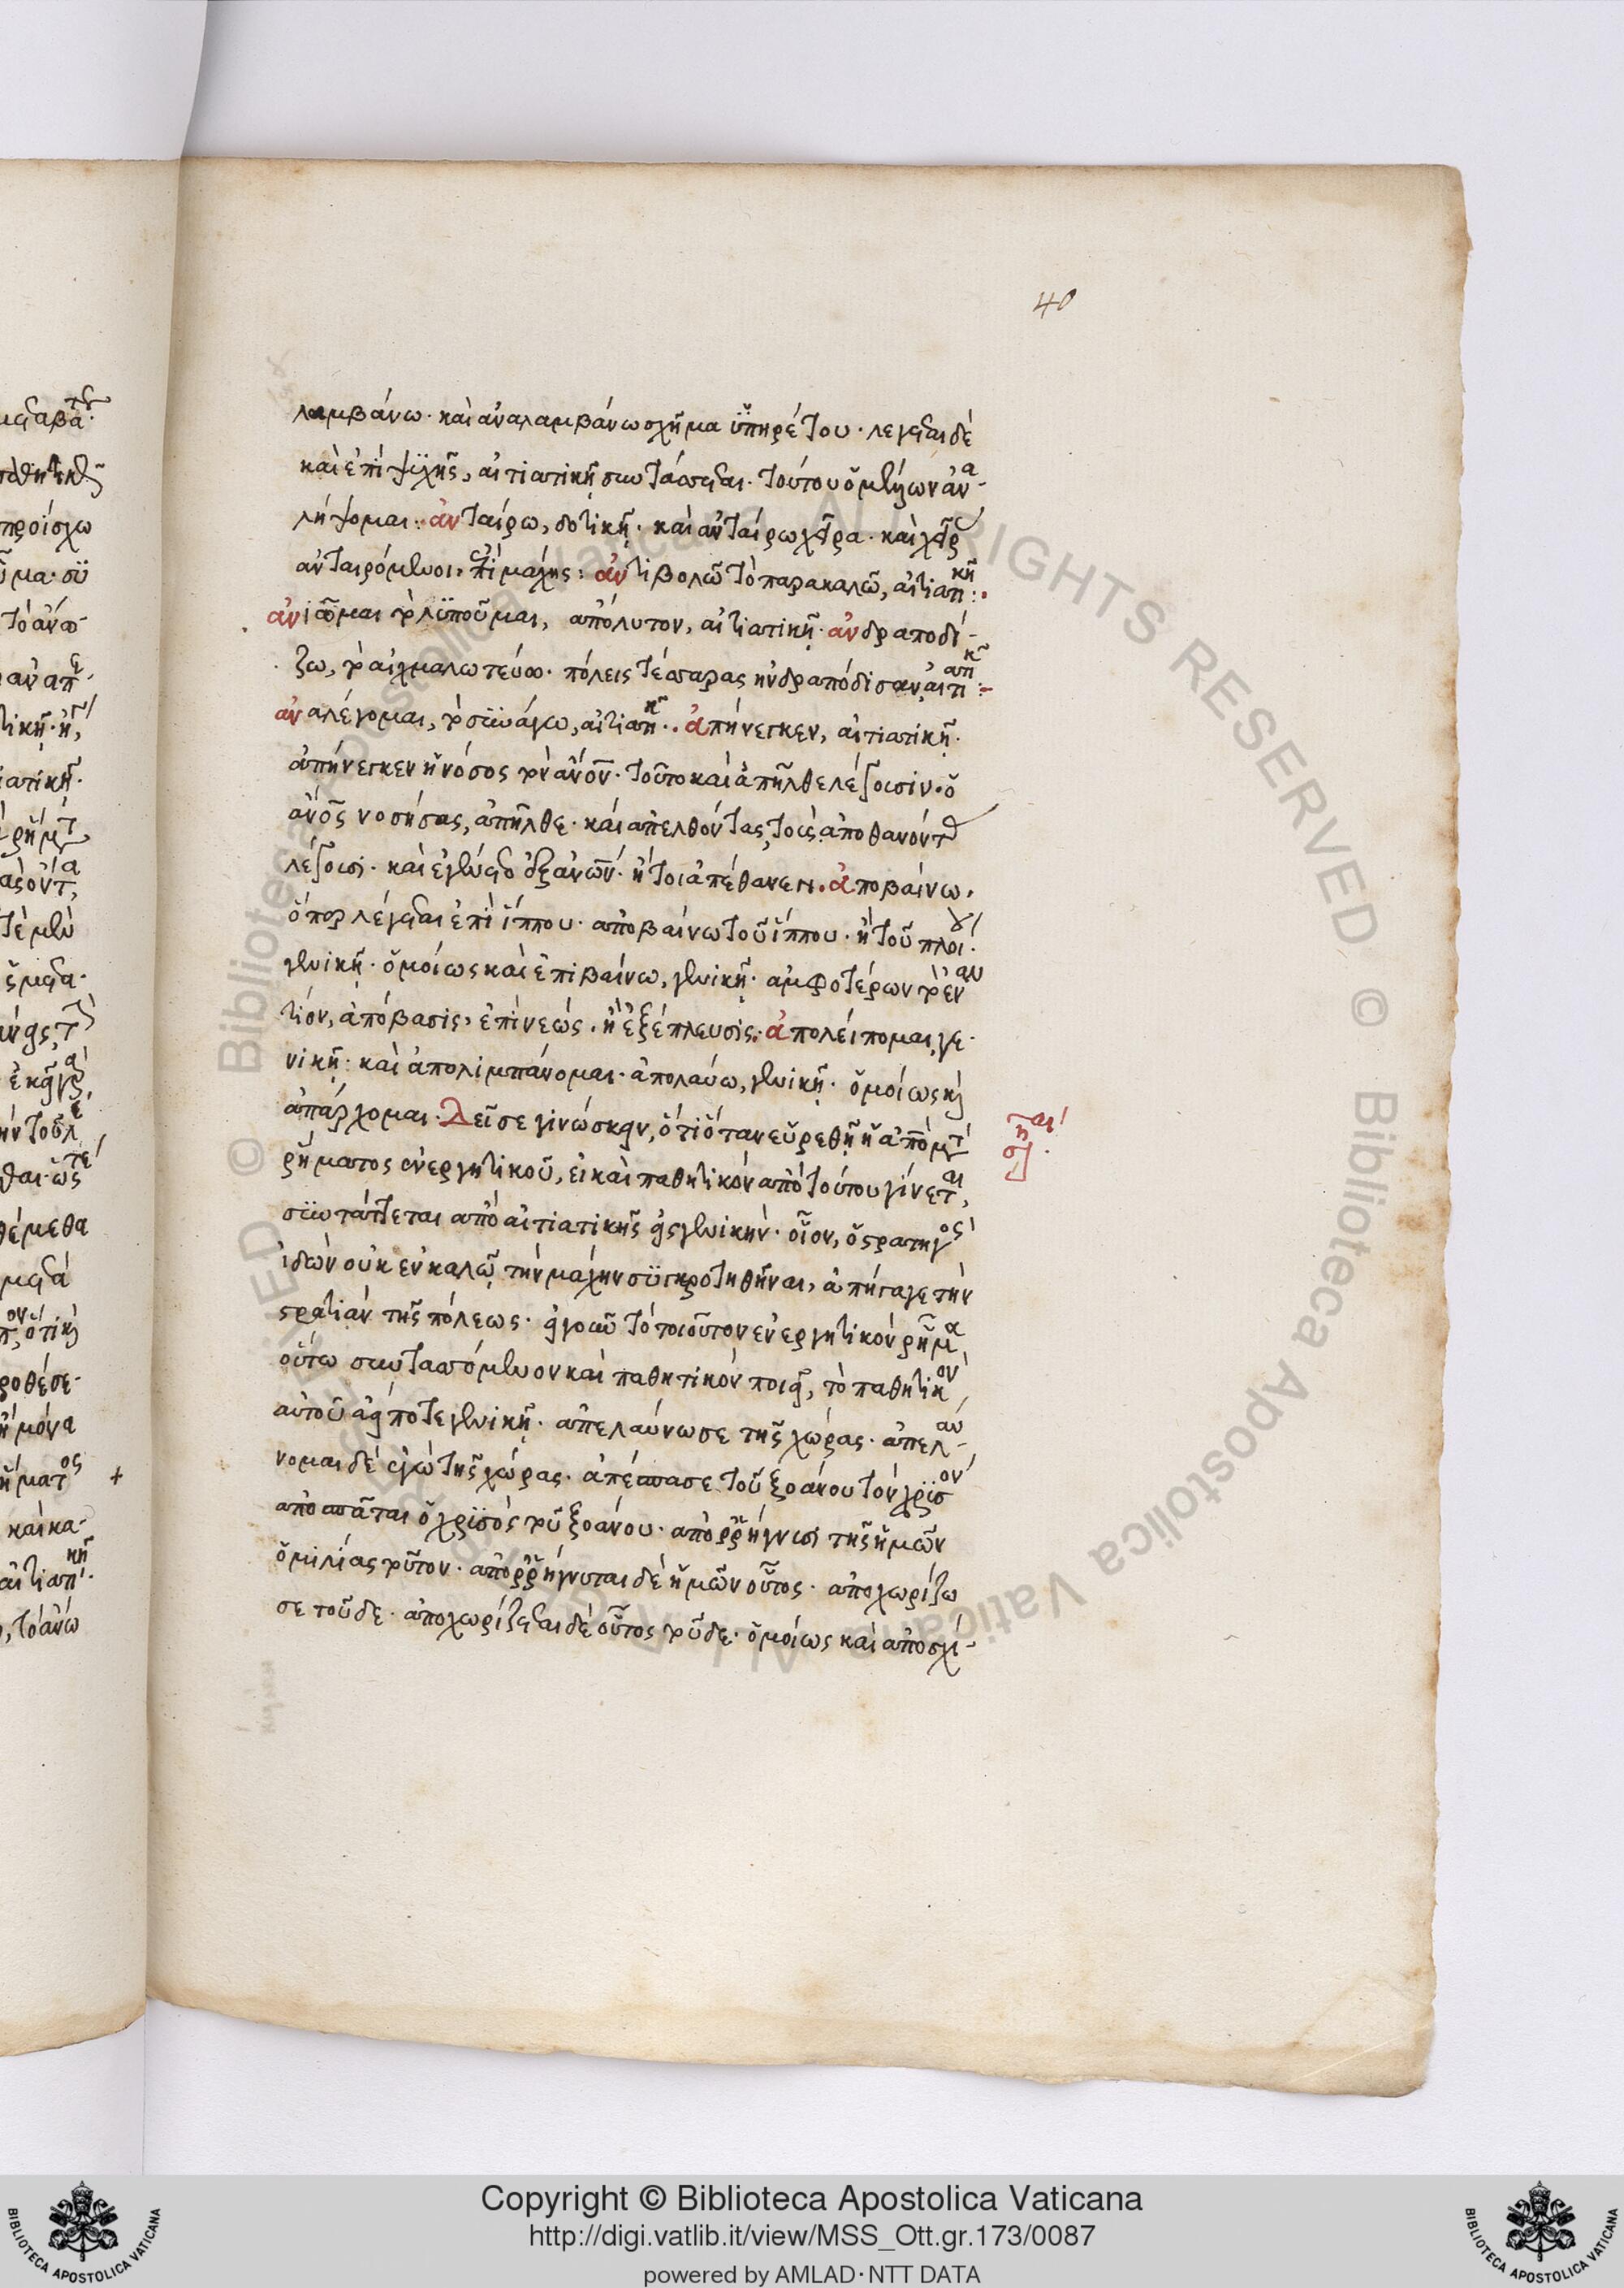 40
λαμβάνω· καὶ ἀναλαμβάνω σχῆμα ὑπηρέτου· λέγεται δὲ
καὶ ἐπὶ ψυχῆς, αἰτιατικῇ συντάσσεται· τούτου ὁ μέλλων ἀνα-
λήψομαι: ἀνταίρω, δοτικῇ· καὶ ἀνταίρω χεῖρα· καὶ χεῖρας
ἀνταιρόμενοι, ἐπὶ μάχης: ἀντιβολῶ τὸ παρακαλῶ, αἰτιατικῇ:
ἀνιῶμαι τὸ λυποῦμαι, ἀπόλυτον, αἰτιατικῇ· ἀνδραποδί-
ζω, τὸ αἰχμαλωτεύω· πόλεις τέσσαρας ἠνδραπόδισαν, αἰτιατικῇ:
ἀναλέγομαι, τὸ συνάγω, αἰτιατικῇ. ἀπήνεγκεν, αἰτιατικῇ·
ἀπήνεγκεν ἡ νόσος τὸν ἄνον· τοῦτο καὶ ἀπῆλθε λέγουσιν· ὁ
ἄνος νοσήσας, ἀπῆλθε· καὶ ἀπελθόντας, τοὺς ἀποθανόντας
λέγουσι· καὶ ἐγένετο ἐξ ἀνων· ἤτοι ἀπέθανεν. ἀποβαίνω,
ὅπερ λέγεται ἐπὶ ἵππου· ἀποβαίνω τοῦ ἵππου· ἢ τοῦ πλοίου·
γενικῇ· ὁμοίως καὶ ἐπιβαίνω, γενικῇ· ἀμφοτέρων τὸ ἐναν
τίον, ἀπόβασις, ἐπὶ νεώς· ἢ ἐξέπλευσις: ἀπολείπομαι, γε-
νικῇ: καὶ ἀπολιμπάνομαι· ἀπολαύω, γενικῇ· ὁμοίως καὶ
ἀπάρχομαι· Δεῖ σε γινώσκειν, ὅτι ὅταν εὑρεθῇ ἡ ἀπὸ μετὰ
ῥήματος ἐνεργητικοῦ, εἰ καὶ παθητικὸν ἀπὸ τούτου γίνεται,
συντάττεται ἀπὸ αἰτιατικῆς εἰς γενικήν· οἷον, ὁ στρατηγὸς
ἰδὼν οὐκ ἐν καλῷ τὴν μάχην συγκροτηθῆναι, ἀπήγαγε τὴν
στρατιὰν τῆς πόλεως· εἰ γοῦν τὸ τοιοῦτον ἐνεργητικὸν ῥῆμα
οὕτω συντασσόμενον καὶ παθητικὸν ποιεῖ, τὸ παθητικὸν
αὐτοῦ ἀεί ποτε γενικῇ· ἀπελαύνω σε τῆς χώρας· ἀπελαύ-
νομαι δὲ ἐγὼ τῆς χώρας· ἀπέσπασε τοῦ ξοάνου τὸν χρυσὸν
ἀποσπᾶται ὁ χρυσὸς τοῦ ξοάνου· ἀπορρήγνυσι τῆς ἡμῶν
ὁμιλίας τοῦτον· ἀπορρήγνυται δὲ ἡμῶν οὗτος· ἀποχωρίζω
σε τοῦδε· ἀποχωρίζεται δὲ οὗτος τοῦδε· ὁμοίως καὶ ἀποσχί-
Copyright © Biblioteca Apostolica Vaticana
http://digi.vatlib.it/view/MSS_Ott.gr.173/0087
powered by AMLAD·NTT DATA